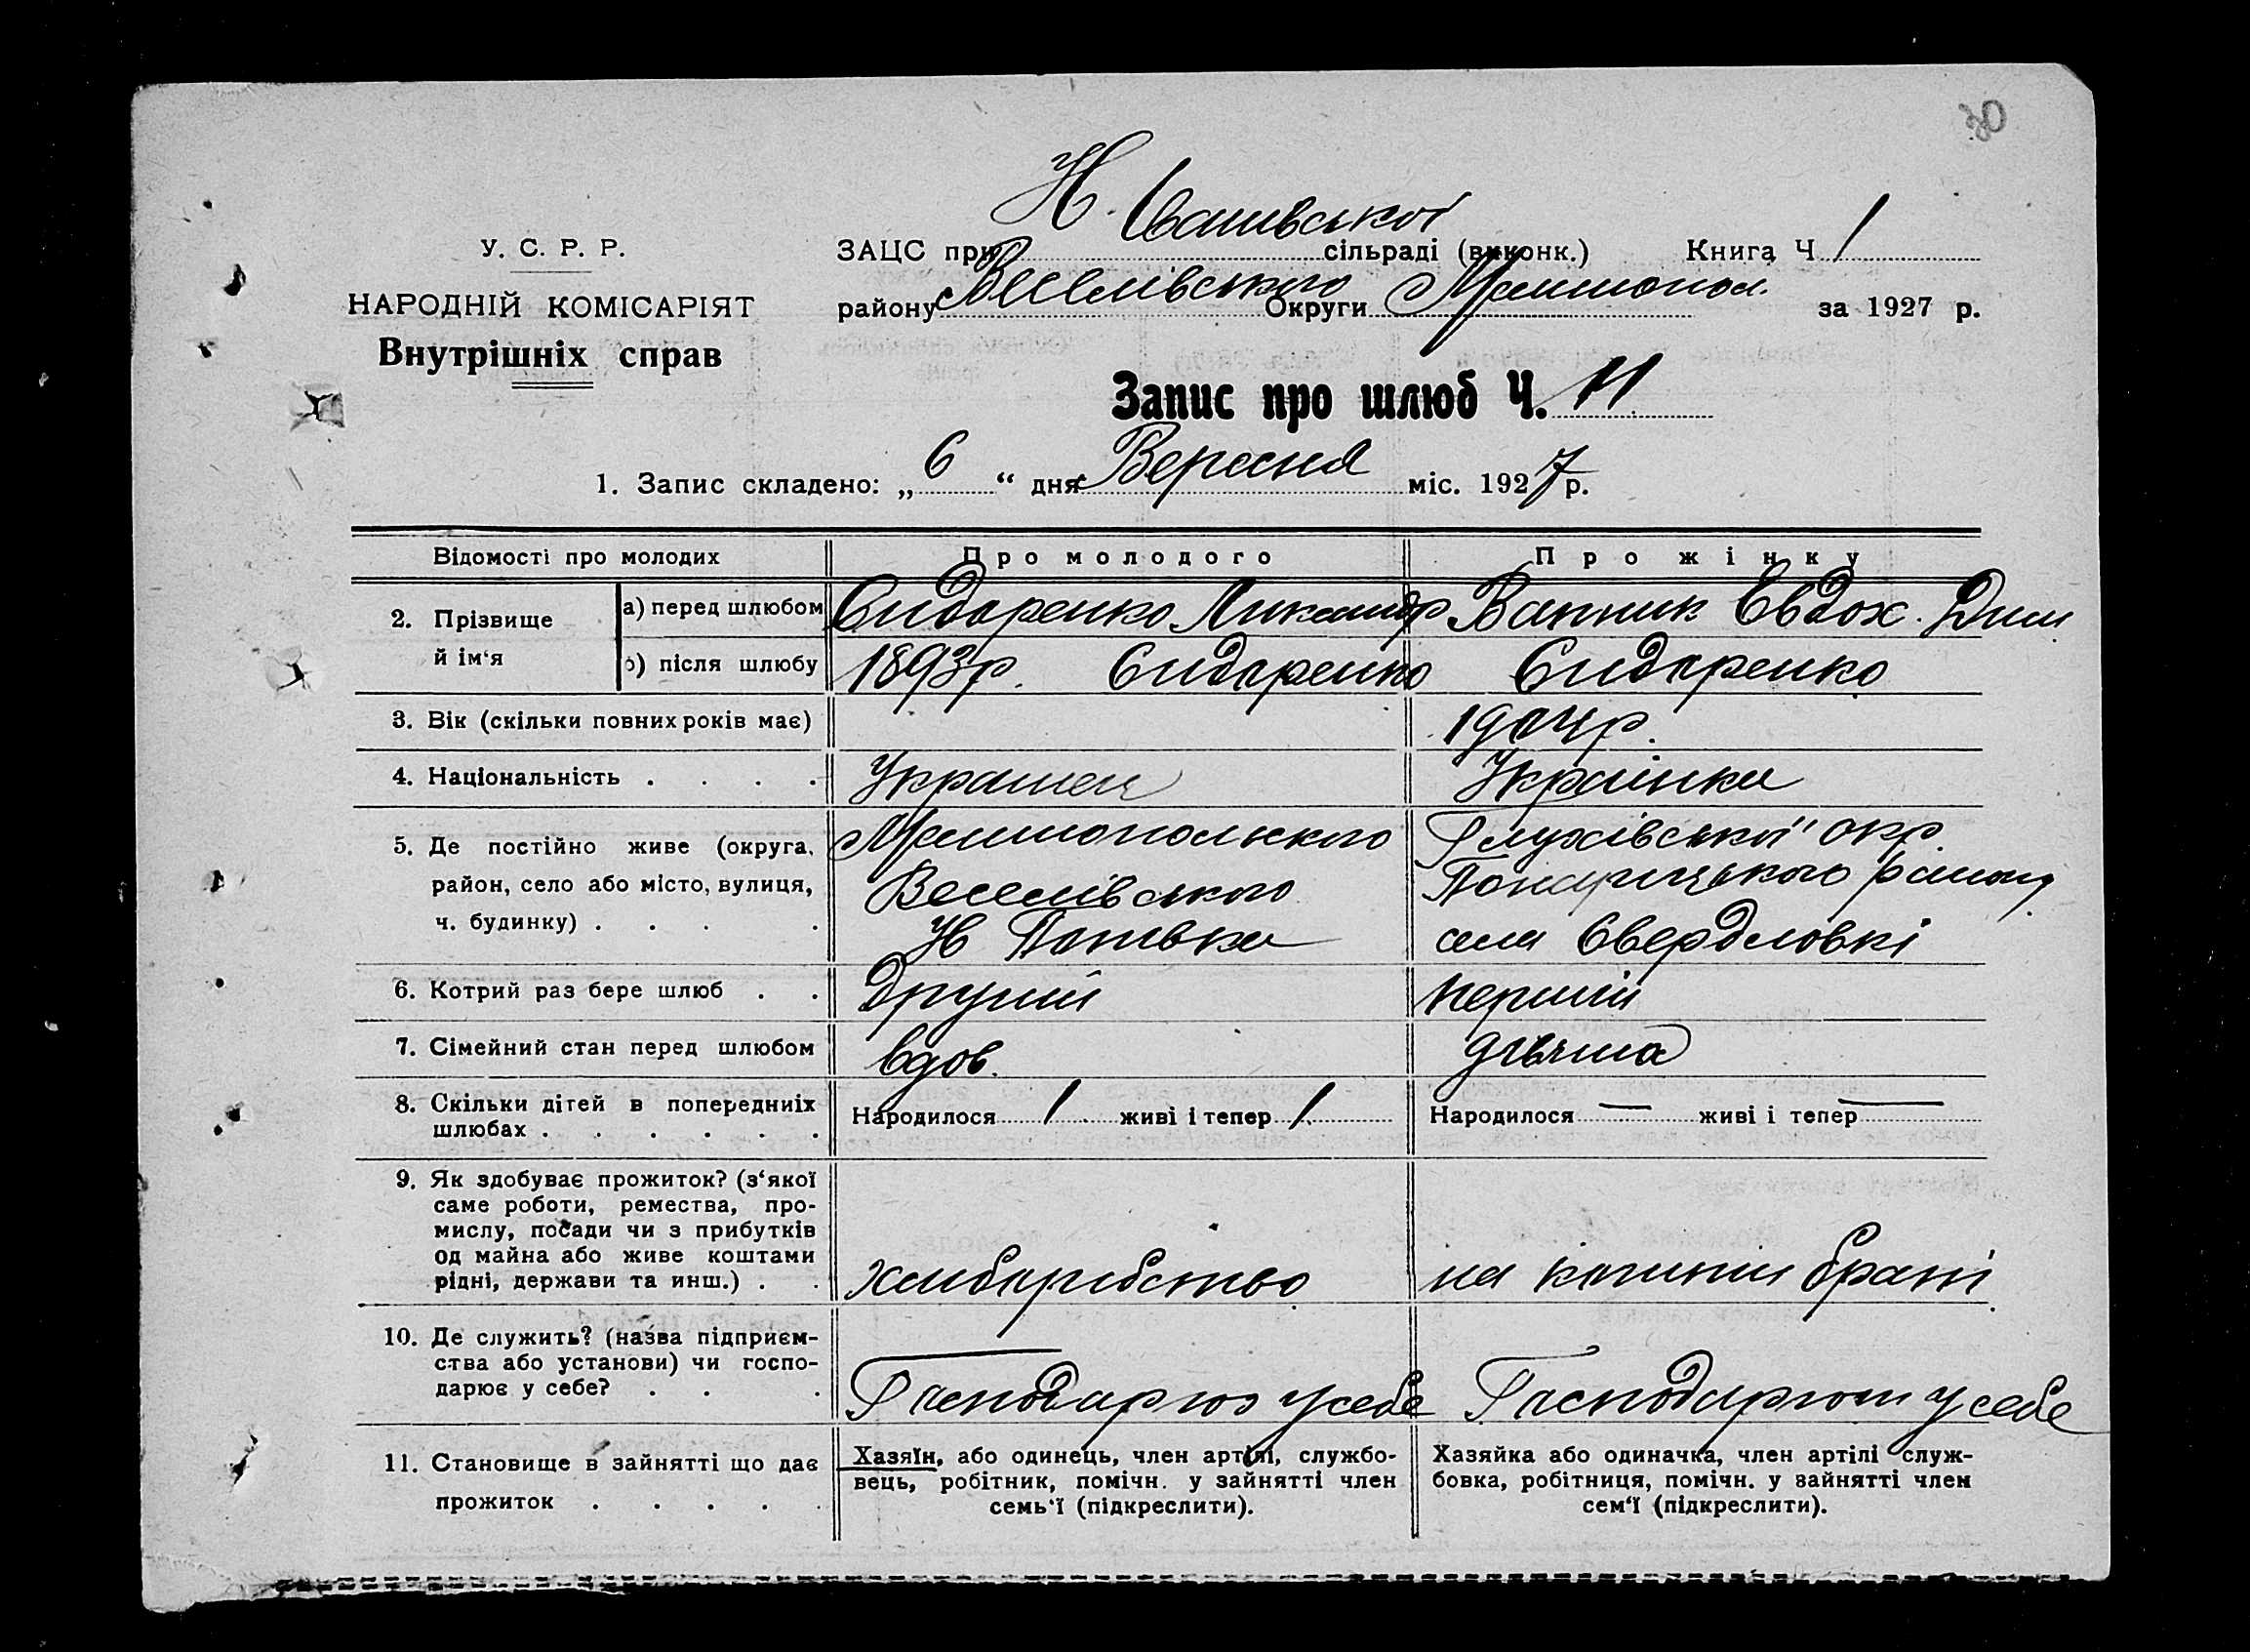 30
Н. Івашівської
У. С. Р. Р.
ЗАЦС при сільраді (виконк.) Книга Ч 1
НАРОДНІЙ КОМІСАРІЯТ
району Веселівського Округи Мелитопол. за 1927 р.
Внутрішніх справ
Запис про шлюб Ч. 11
1. Запис складено: „ 6 “ дня Вересня міс. 1927 р.
Відомості про молодих Про молодого Про жінку
2. Прізвище й ім‘я
а) перед шлюбом Сидоренко Ликандр Вапник Євдох. Дми
б) після шлюбу 1893 р. Сидоренко Сидоренко
3. Вік (скільки повних років має) 1904 р.
4. Національність . . . . Украінец Украінка
5. Де постійно живе (округа, Мелитопольского Глухівської окр.
район, село або місто, вулиця, Веселівського Понурницького району
ч. будинку) . . . . Н села Свердловкі
6. Котрий раз бере шлюб . . Другий перший
7. Сімейний стан перед шлюбом вдов. дівчина
8. Скільки дітей в попередниіх
шлюбах . . . . . .
Народилося 1 живі і тепер 1 Народилося — живі і тепер —
9. Як здобуває прожиток? (з‘якої
саме роботи, ремества, про-
мислу, посади чи з прибутків
од майна або живе коштами
рідні, держави та инш.) . . хлиборобство на браті
10. Де служить? (назва підприєм-
ства або установи) чи госпо-
дарює у себе? . . . Господарює у себе Господарюит у себе
11. Становище в зайнятті що дає
прожиток . . . . .
Хазяїн, або одинець, член артілі, службо-
вець, робітник, помічн. у зайнятті член
семь‘ї (підкреслити).
Хазяйка або одиначка, член артілі служ-
бовка, робітниця, помічн. у зайнятті член
сем‘ї (підкреслити).